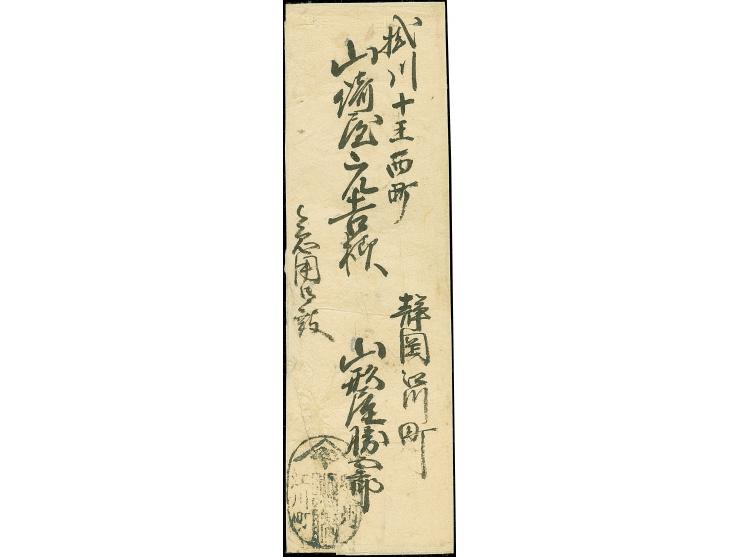 掛川十王西町
山崎屋元吉様
静岡江川町
山形屋勝四郎
急用
川町